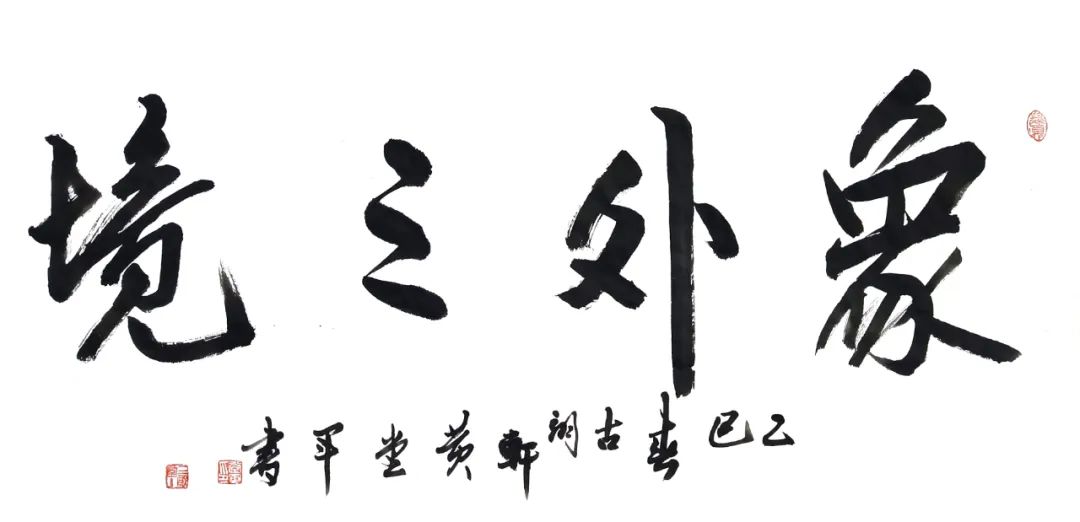 象外之境
乙巳春古润轩黄堂军书